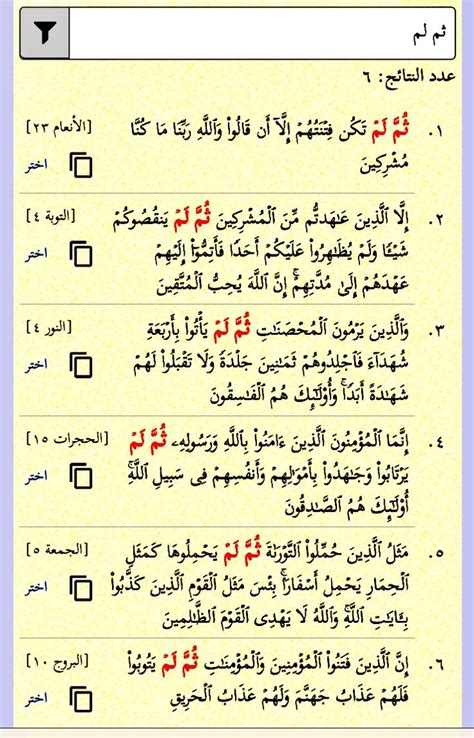 ثم لم
عدد النتائج: ٦
١. ثُمَّ لَمۡ تَكُن فِتۡنَتُهُمۡ إِلَّآ أَن قَالُواْ وَٱللَّهِ رَبِّنَا مَا كُنَّا [الأنعام ٢٣]
مُشۡرِكِينَ اختر
٢. إِلَّا ٱلَّذِينَ عَـٰهَدتُّم مِّنَ ٱلۡمُشۡرِكِينَ ثُمَّ لَمۡ يَنقُصُوكُمۡ [التوبة ٤]
شَيۡـًٔا وَلَمۡ يُظَـٰهِرُواْ عَلَيۡكُمۡ أَحَدًا فَأَتِمُّوٓاْ إِلَيۡهِمۡ اختر
عَهۡدَهُمۡ إِلَىٰ مُدَّتِهِمۡۚ إِنَّ ٱللَّهَ يُحِبُّ ٱلۡمُتَّقِينَ
٣. وَٱلَّذِينَ يَرۡمُونَ ٱلۡمُحۡصَنَـٰتِ ثُمَّ لَمۡ يَأۡتُواْ بِأَرۡبَعَةِ [النور ٤]
شُهَدَآءَ فَٱجۡلِدُوهُمۡ ثَمَـٰنِينَ جَلۡدَةً وَلَا تَقۡبَلُواْ لَهُمۡ اختر
شَهَـٰدَةً أَبَدًاۚ وَأُوْلَـٰٓئِكَ هُمُ ٱلۡفَـٰسِقُونَ
٤. إِنَّمَا ٱلۡمُؤۡمِنُونَ ٱلَّذِينَ ءَامَنُواْ بِٱللَّهِ وَرَسُولِهِۦ ثُمَّ لَمۡ [الحجرات ١٥]
يَرۡتَابُواْ وَجَـٰهَدُواْ بِأَمۡوَٰلِهِمۡ وَأَنفُسِهِمۡ فِى سَبِيلِ ٱللَّهِۚ اختر
أُوْلَـٰٓئِكَ هُمُ ٱلصَّـٰدِقُونَ
٥. مَثَلُ ٱلَّذِينَ حُمِّلُواْ ٱلتَّوۡرَىٰةَ ثُمَّ لَمۡ يَحۡمِلُوهَا كَمَثَلِ [الجمعة ٥]
ٱلۡحِمَارِ يَحۡمِلُ أَسۡفَارَۢاۚ بِئۡسَ مَثَلُ ٱلۡقَوۡمِ ٱلَّذِينَ كَذَّبُواْ اختر
بِـَٔايَـٰتِ ٱللَّهِۚ وَٱللَّهُ لَا يَهۡدِى ٱلۡقَوۡمَ ٱلظَّـٰلِمِينَ
٦. إِنَّ ٱلَّذِينَ فَتَنُواْ ٱلۡمُؤۡمِنِينَ وَٱلۡمُؤۡمِنَـٰتِ ثُمَّ لَمۡ يَتُوبُواْ [البروج ١٠]
فَلَهُمۡ عَذَابُ جَهَنَّمَ وَلَهُمۡ عَذَابُ ٱلۡحَرِيقِ اختر